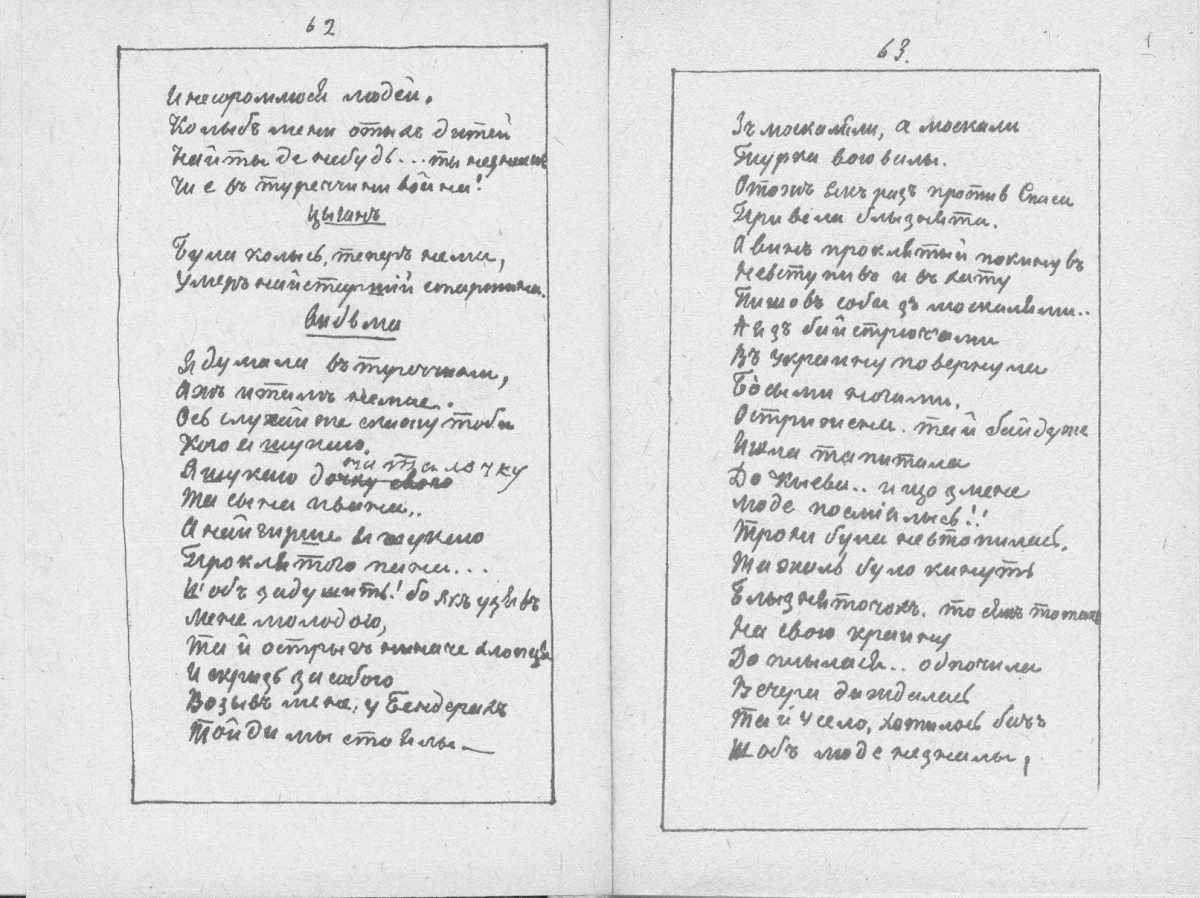 62
И несоромлюся людей.
Колыбъ мени отыхъ дитей
Найты де небудь... ты незнаешъ
Чи е въ туреччини война!
Цыганъ
Була колысь, теперъ нема,
Умеръ найстаршій старшина.
Видьма
Я думала въ туреччини,
Ажъ и тамъ немае.
Ось слухай же скажу тоби
Кого я шукаю.
Я шукаю дочку свою Наталочку
Та сына Ивана..
А найгирше я шукаю
Проклятого пана...
Щобъ задушить! бо якъ узявъ
Мене молодою,
Та й острыгъ мыначе хлопця
И скризь за собою
Возывъ мене, у Бендерахъ
Тойди мы стоялы —
63.
1
Зъ москалями, а москали
Турка воювалы.
Отожъ якъ разъ против Спаса
Привела блызнята.
А винъ проклятый покинувъ
Невступивъ и въ хату
Пишовъ соби зъ москалями..
А я зъ байстрюками
Въ Украину повернула
Босыми ногами,
Острижена. та й байдуже
Ишла та питала
До Киева.. и що змене
Люде посміялысь!!
Трохи була невтопилась,
Та жаль було кинуть
Блызняточокъ. то сякъ то такъ
На свою краину
Допхылася.. одпочила
Вечера дождалась
Та й у село, хотилось бачъ
Щобъ люде незналы,